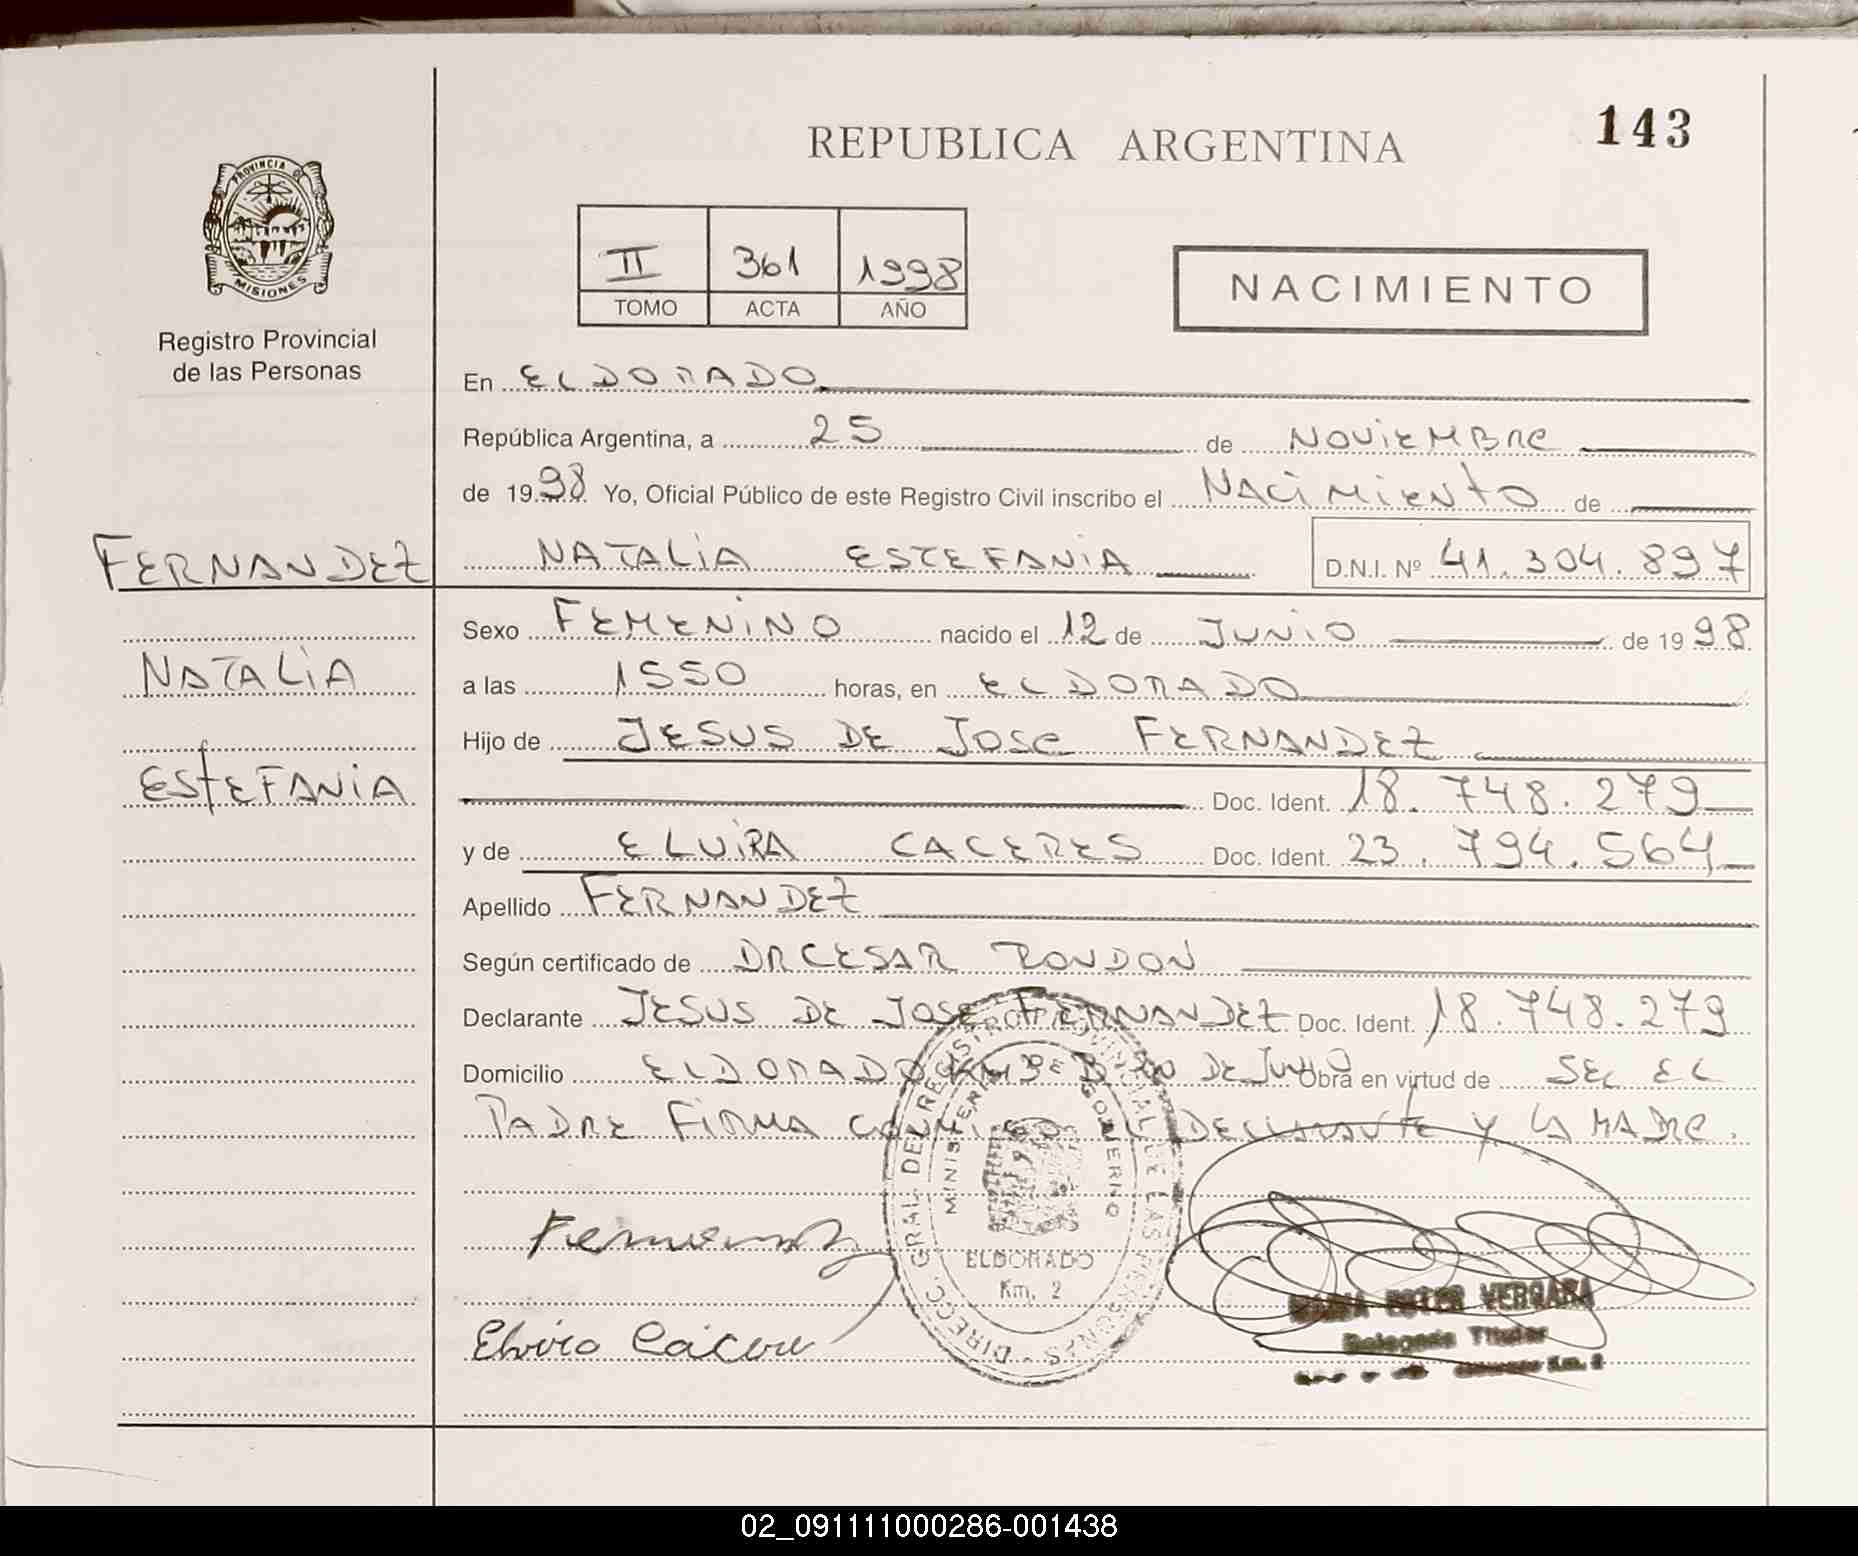 143
REPUBLICA ARGENTINA
PROVINCIA DE
MISIONES
Registro Provincial
de las Personas
II 361 1998
TOMO ACTA AÑO
NACIMIENTO
En ELDORADO
República Argentina, a 25 de NOVIEMBRE
de 1998 Yo, Oficial Público de este Registro Civil inscribo el NACIMIENTO de
FERNANDEZ NATALIA ESTEFANIA D.N.I. Nº 41.304.897
Sexo FEMENINO nacido el 12 de JUNIO de 1998
NATALIA
a las 1550 horas, en ELDORADO
Hijo de JESUS DE JOSE FERNANDEZ
ESTEFANIA
Doc. Ident. 18.748.279
y de ELVIRA CACERES Doc. Ident. 23.794.564
Apellido FERNANDEZ
Según certificado de DR CESAR RONDON
Declarante JESUS DE JOSE FERNANDEZ Doc. Ident. 18.748.279
Domicilio ELDORADO KM 3 Bº 20 DE JUNIO Obra en virtud de SEL EL
PADRE FIRMA DECLARANTE Y LA MADRE.
DIRECC. GRAL. DEL REGISTRO PROVINCIAL DE LAS PERSONAS
MINISTERIO DE GOBIERNO
ELDORADO
Km. 2
Fernandez
Elvira Cáceres
MARIA ESTER VERGARA
Delegada Titular
Eldorado Km. 2
02_091111000286-001438